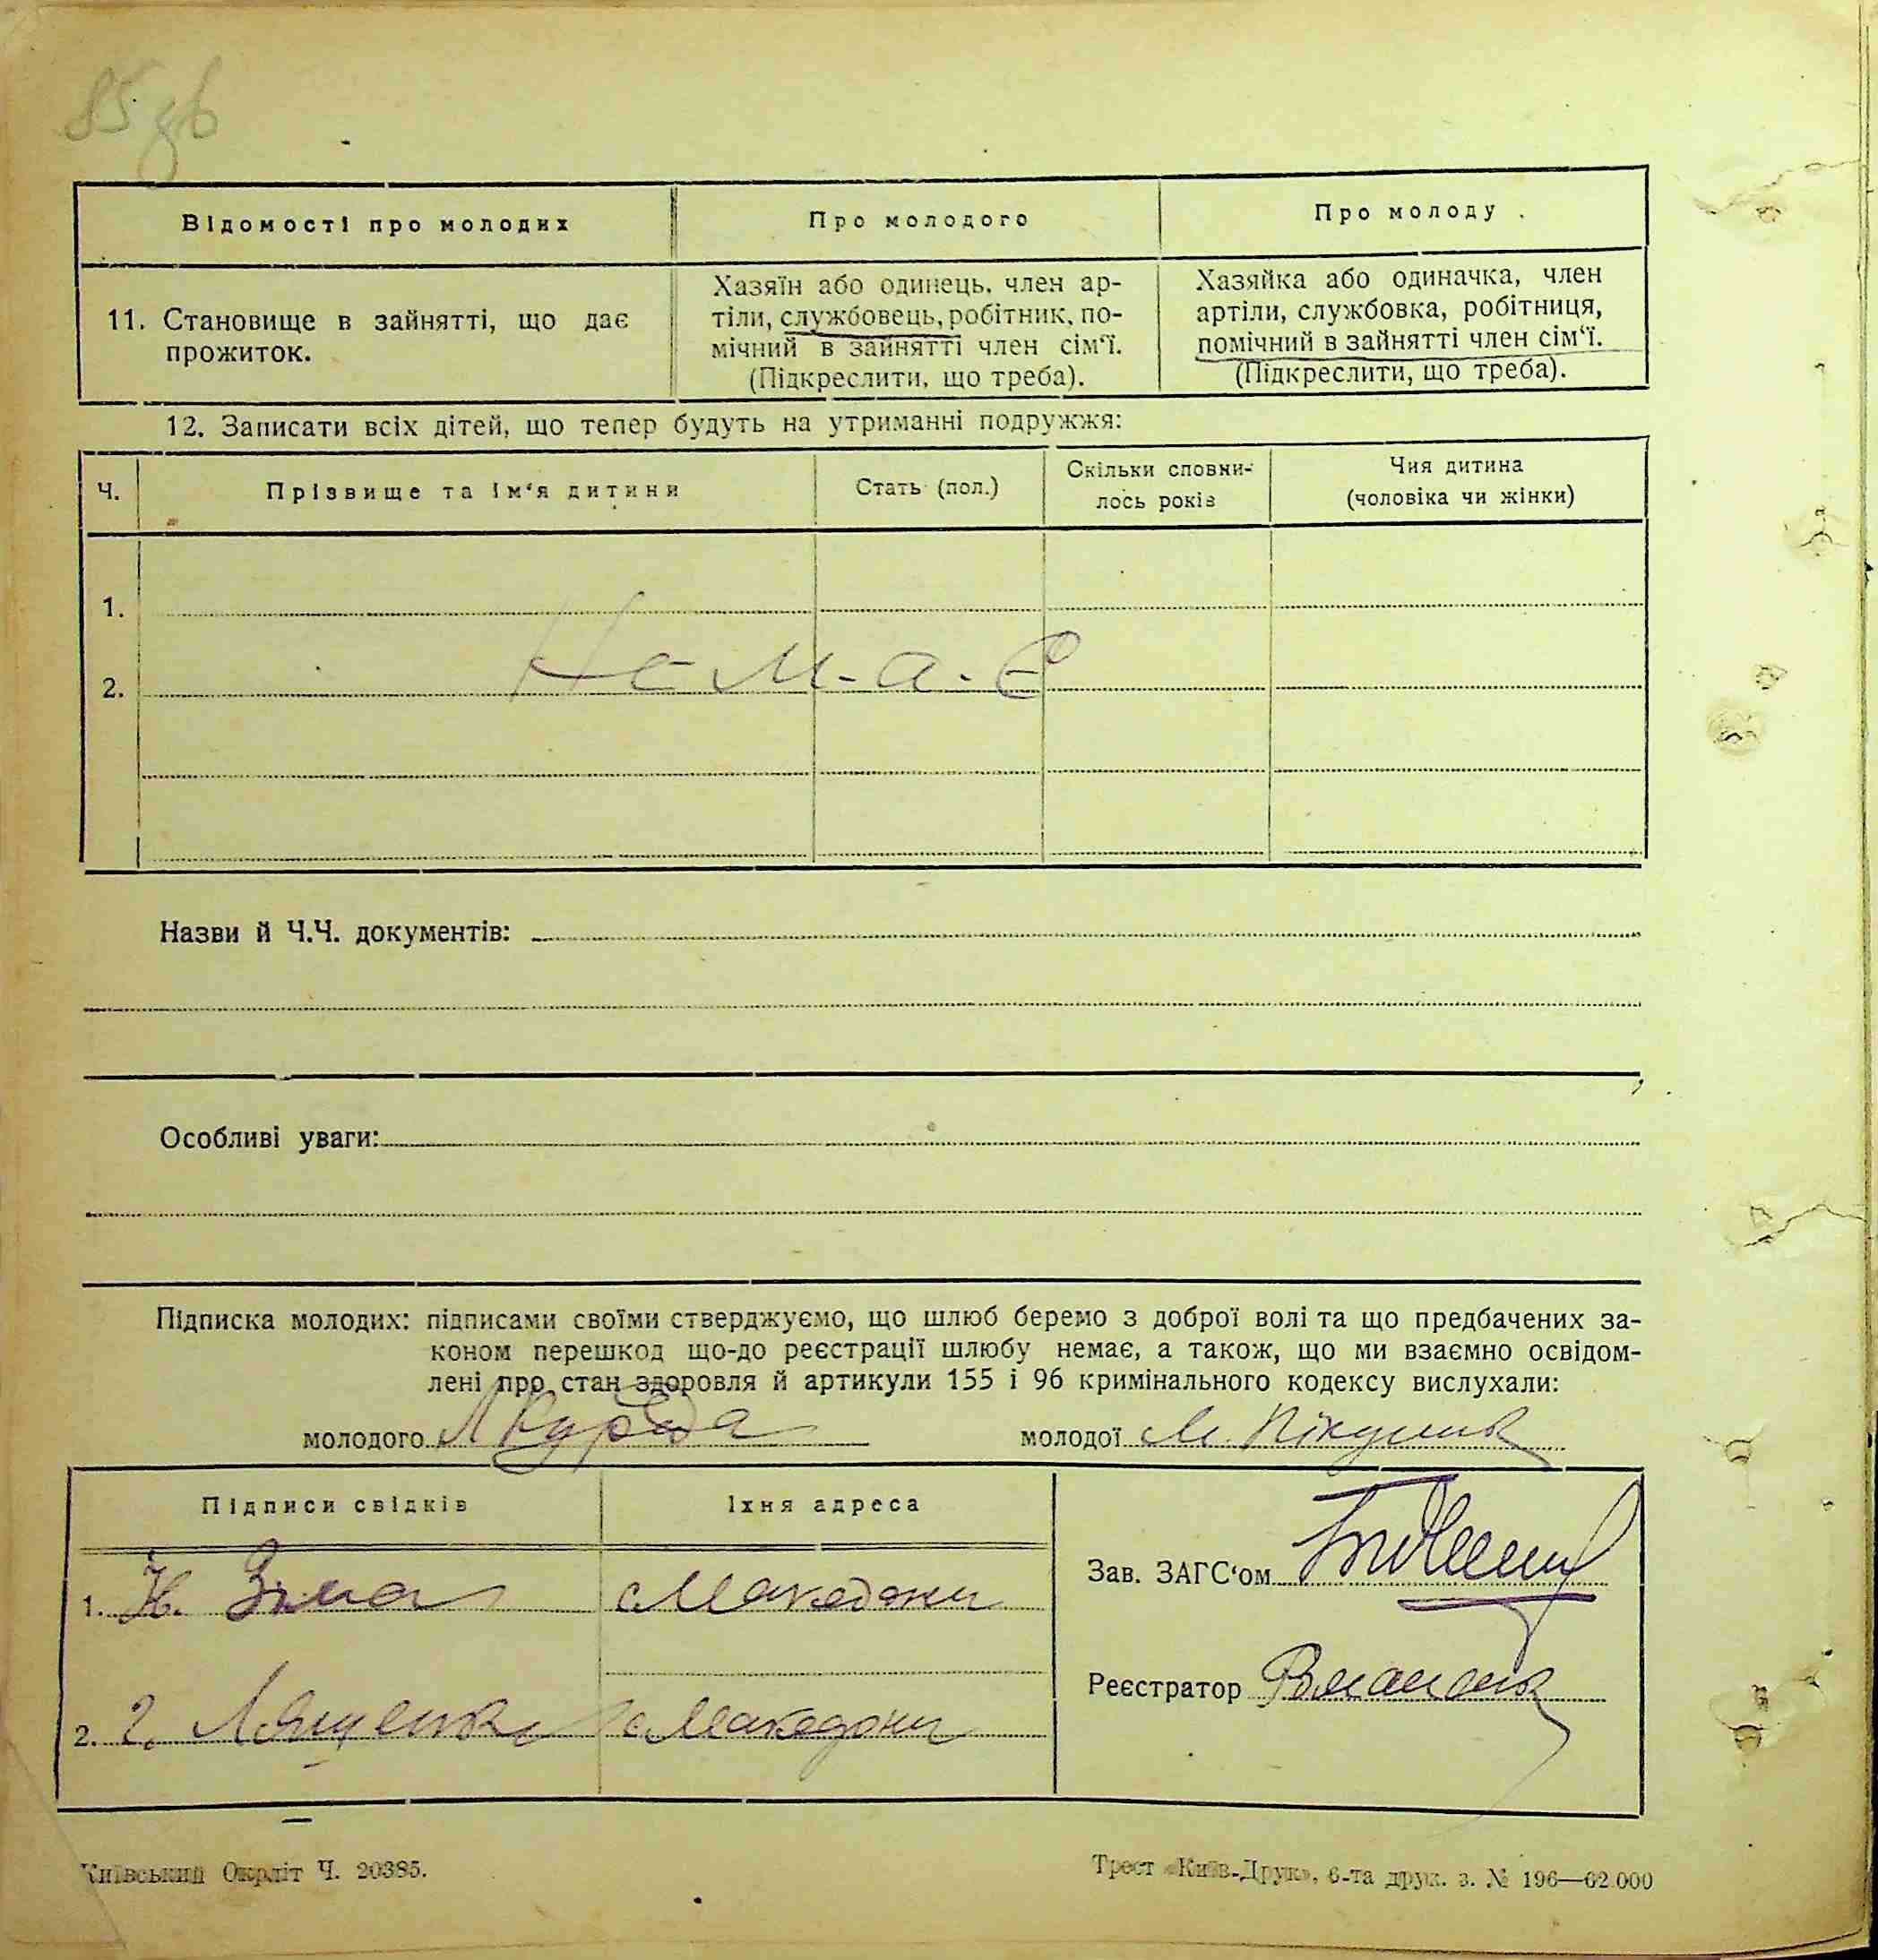 85 зв
Відомості про молодих
Про молодого
Про молоду
11. Становище в зайнятті, що дає
прожиток.
Хазяїн або одинець, член ар-
тіли, службовець, робітник, по-
мічний в зайнятті член сім‘ї.
(Підкреслити, що треба).
Хазяйка або одиначка, член
артіли, службовка, робітниця,
помічний в зайнятті член сім‘ї.
(Підкреслити, що треба).
12. Записати всіх дітей, що тепер будуть на утриманні подружжя:
Ч.
Прізвище та ім‘я дитини
Стать (пол.)
Скільки сповни-
лось років
Чия дитина
(чоловіка чи жінки)
1.
Не-м-а-є
2.
Назви й Ч.Ч. документів:
Особливі уваги:
Підписка молодих: підписами своїми стверджуємо, що шлюб беремо з доброї волі та що предбачених за-
коном перешкод що-до реєстрації шлюбу немає, а також, що ми взаємно освідом-
лені про стан здоровля й артикули 155 і 96 кримінального кодексу вислухали:
молодого
молодої М. Пікулик
Підписи свідків
Їхня адреса
1. Н. Зима
с Македони
Зав. ЗАГС‘ом
2. Г. Лященко
с Македони
Реєстратор
Київський Окрліт Ч. 20385.
Трест «Київ-Друк», 6-та друк. з. № 196—62.000